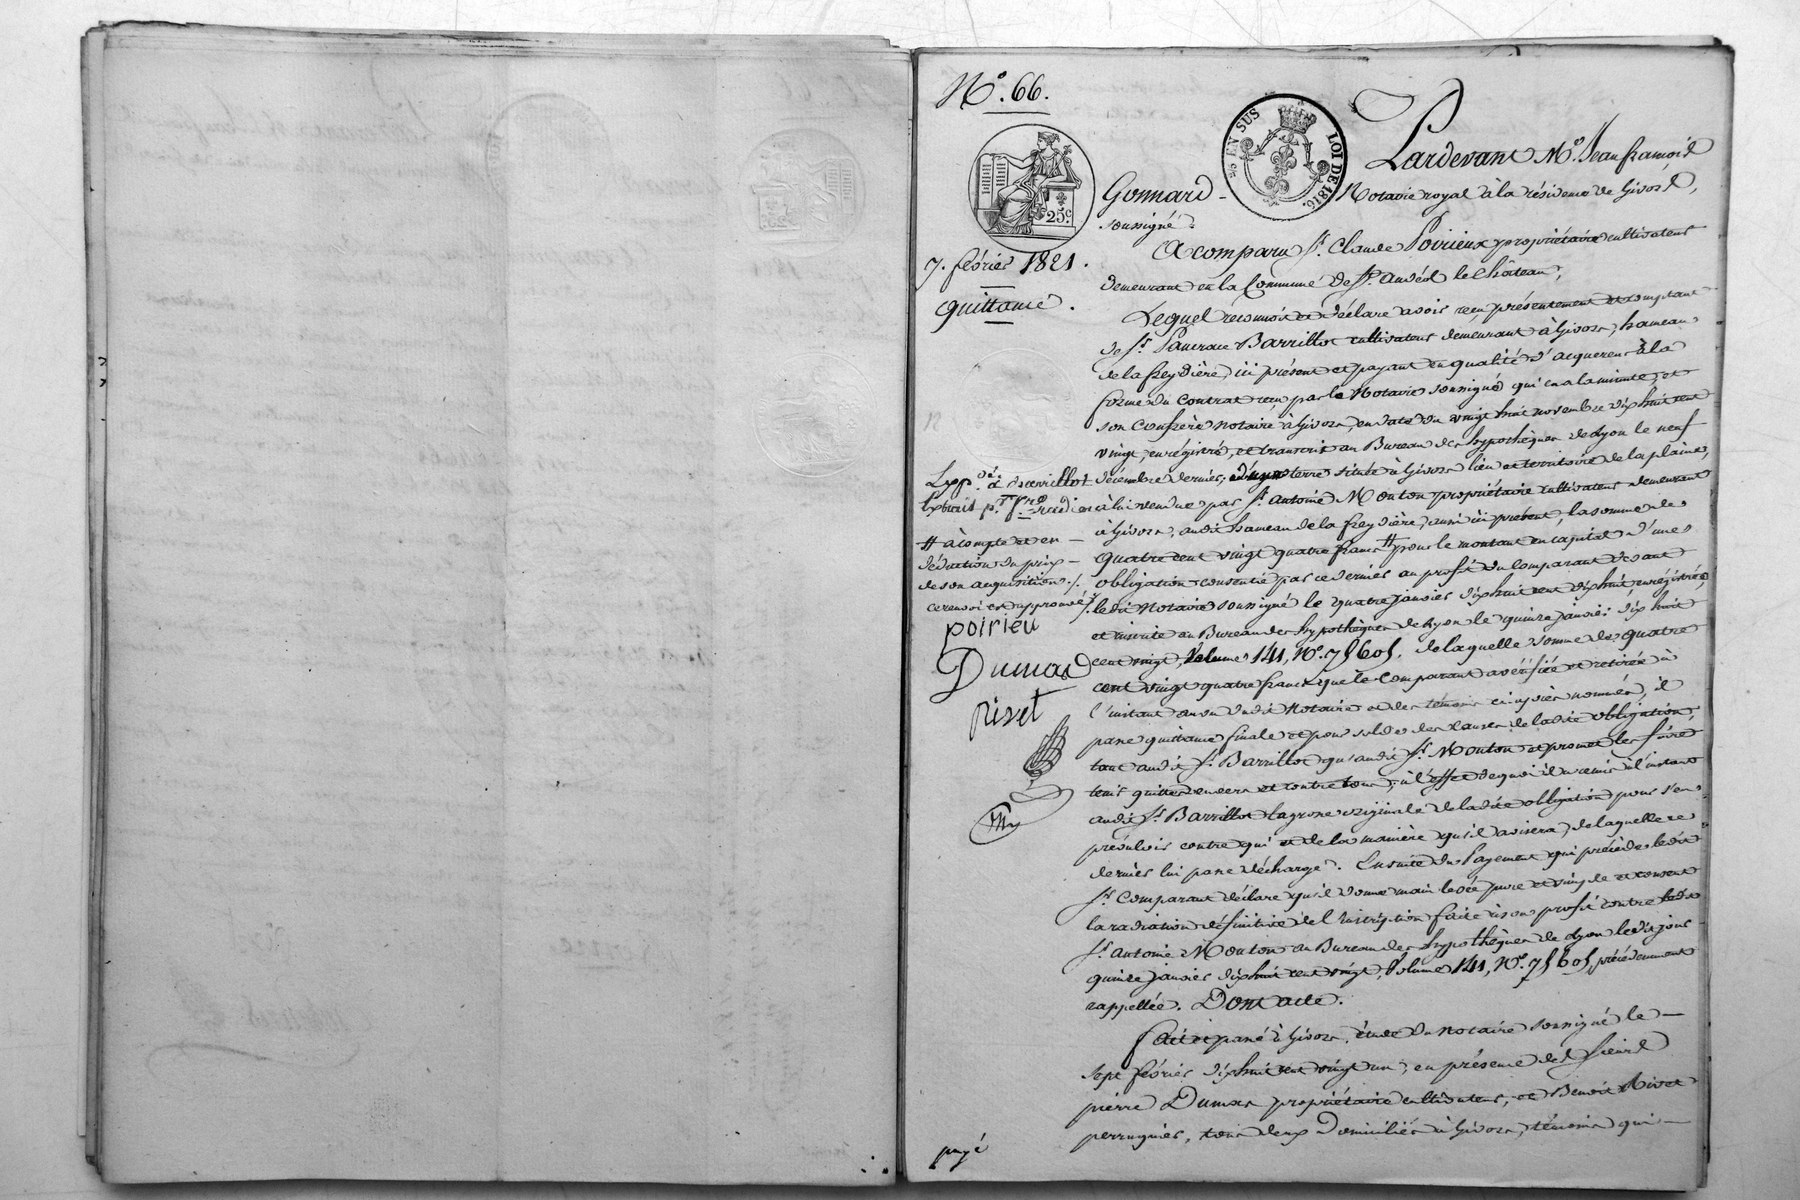 N.° 66.
25 EN SUS LOI DE 1816.
25c
7. février 1821.
quittance.
Pardevant M.e Jean françois
Gonnard Notaire royal à la résidence de Givors,
soussigné.
A comparu S.r Claude Poirieux propriétaire cultivateur
demeurant en la Commune de S.t andéol le château;
Lequel reconnoit et déclare avoir reçu présentement et comptant
de S.r Pancrace Barrillot cultivateur demeurant à Givors, hameau
de la freydière, ici présent et payant en qualité d'acquereur à la
forme du contrat reçu par le Notaire soussigné qui en a la minute, et
son confrère notaire à Givors, en date du vingt huit novembre dix huit cent
vingt, enrégistré, et transcrit au Bureau des hypothèques de Lyon le neuf
décembre dernier, d'une terre située à Givors lieu et territoire de la plaine,
à lui vendue par S.r antoine Mouton propriétaire cultivateur demeurant
à Givors, audit hameau de la freydière, aussi ici présent, la somme de
quatre cent vingt quatre francs # pour le montant en capital d'une
obligation consentie par ce dernier au profit du comparant devant
ledit Notaire soussigné le quatre janvier dix huit cent dix huit, enrégistrée,
et inscrite au Bureau des hypothèques de Lyon le quinze janvier dix huit
cent vingt, Volume 141, N.° 75605. de laquelle somme de quatre
cent vingt quatre francs que le Comparant a vérifiée et retirée à
l'instant au vu dudit Notaire et des témoins ci après nommés, il
passe quittance finale et pour solde des causes de ladite obligation,
tant audit S.r Barrillot qu'audit S.r Mouton et promet les faire
tenir quittes envers et contre tous; à l'effet de quoi il a remis à l'instant
audit S.r Barrillot la grosse originale de ladite obligation pour s'en
prévaloir contre qui et de la manière qu'il avisera, de laquelle ce
dernier lui passe décharge. Ensuite du Payement qui précède ledit
S.r Comparant déclare qu'il donne main levée pure et simple et consent
la radiation définitive de l'inscription faite à son profit contre ledit
S.r antoine Mouton au Bureau des hypothèques de Lyon ledit jour
quinze janvier dix huit cent vingt, Volume 141, N.° 75605, précédemment
rappellée. Dont acte.
fait et passé à Givors, étude du notaire soussigné le
sept février dix huit cent vingt un; en présence des Sieurs
pierre Dumas propriétaire cultivateur, et Benoit Rivet
perruquier, tous deux domiciliés à Givors, témoins qui
Exp.é à Barrillot
# à compte et en
déduction du prix
de son acquisition ./.
ce renvoi est approuvé ./.
poirieu
Dumas
rivet
payé